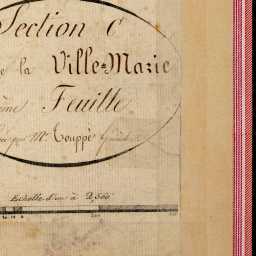 Section C
de la Ville-Marie
ème Feuille
par Mr. Touppé
Echelle d'un à 2500